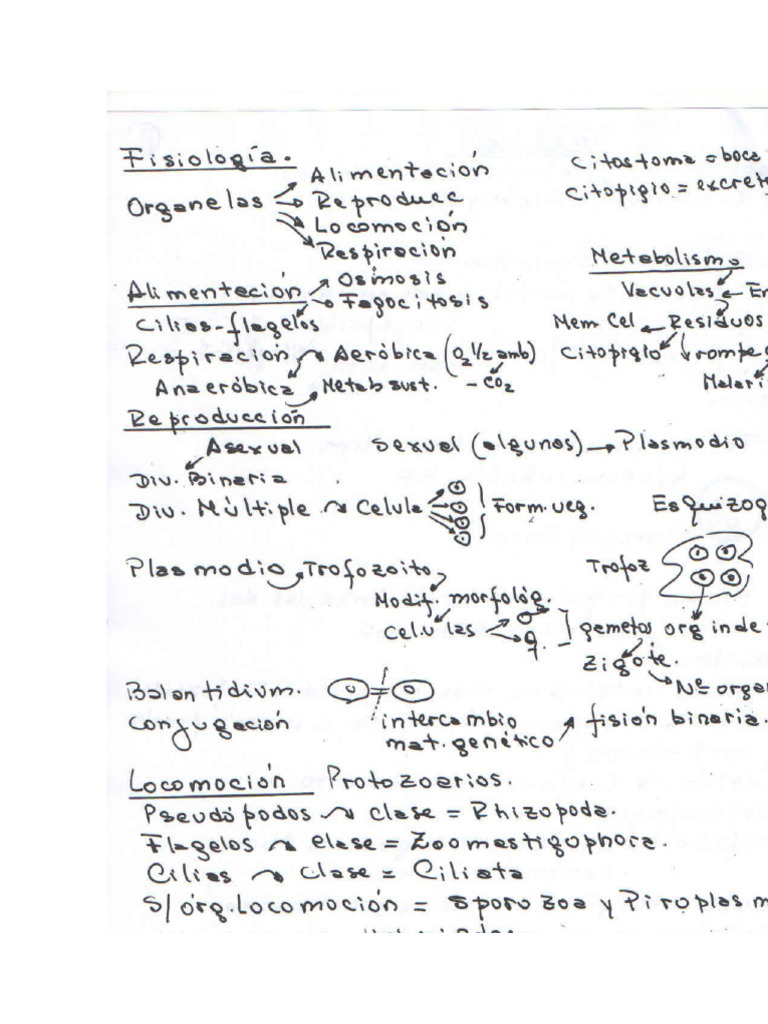 Fisiología.
Citostoma = boca
Citopigio = excret
Organelas → Alimentación
→ Reproducc
→ Locomoción
→ Respiración
Metabolismo
Alimentación → Osmosis
→ Fagocitosis
Cilias-flagelos
Vacuolas ← En
Mem Cel ← Residuos
Citopigio ↓ rompe
Malari
Respiración → Aeróbica (O₂ 1/2 amb)
Anaeróbica → Metab sust. - CO₂
Reproducción
Asexual Sexual (algunos) → Plasmodio
Div. Binaria
Div. Múltiple → Celula } Form. veg. Esquizog
Plasmodio → Trofozoito Trofoz
Modif. morfológ.
Celulas → ♂ ♀ ] gametos org inde
Zigote.
Nº organ
Balantidium.
Conjugación intercambio fisión binaria.
mat. genético
Locomoción Protozoarios.
Pseudópodos → clase = Rhizopoda.
Flagelos → clase = Zoomastigophora.
Cilias → clase = Ciliata
S/ órg. Locomoción = Sporozoa y Piroplasm